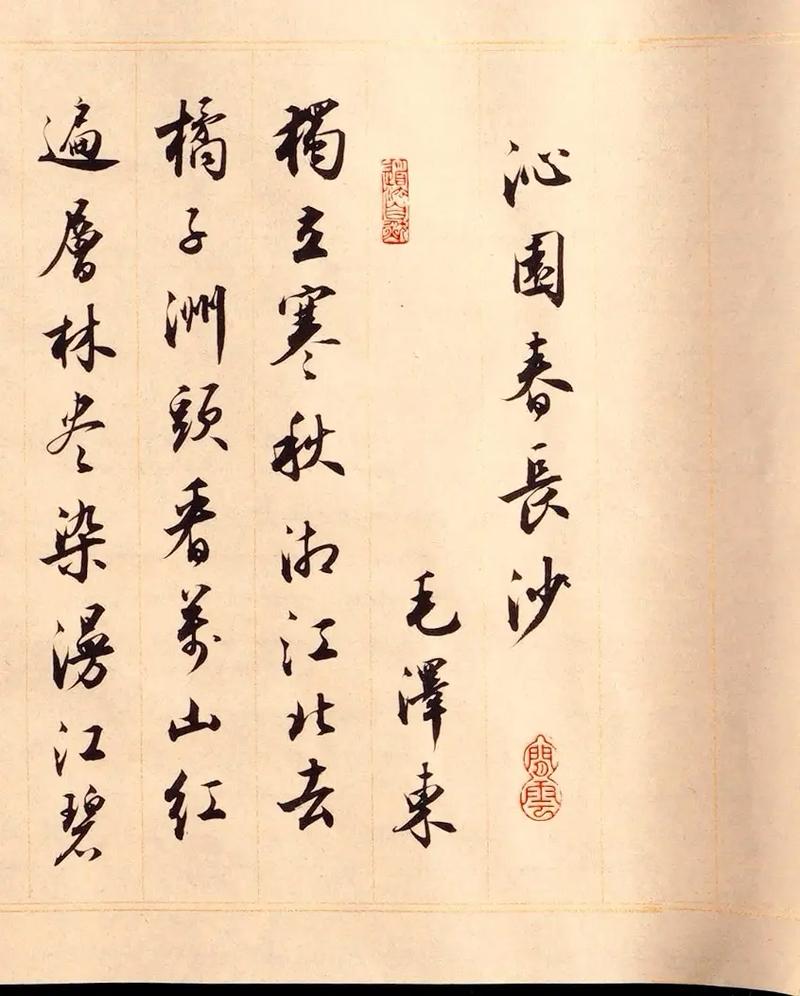 沁園春長沙
閒雲
道法自然
毛澤東
獨立寒秋湘江北去
橘子洲頭看萬山紅
遍層林尽染漫江碧